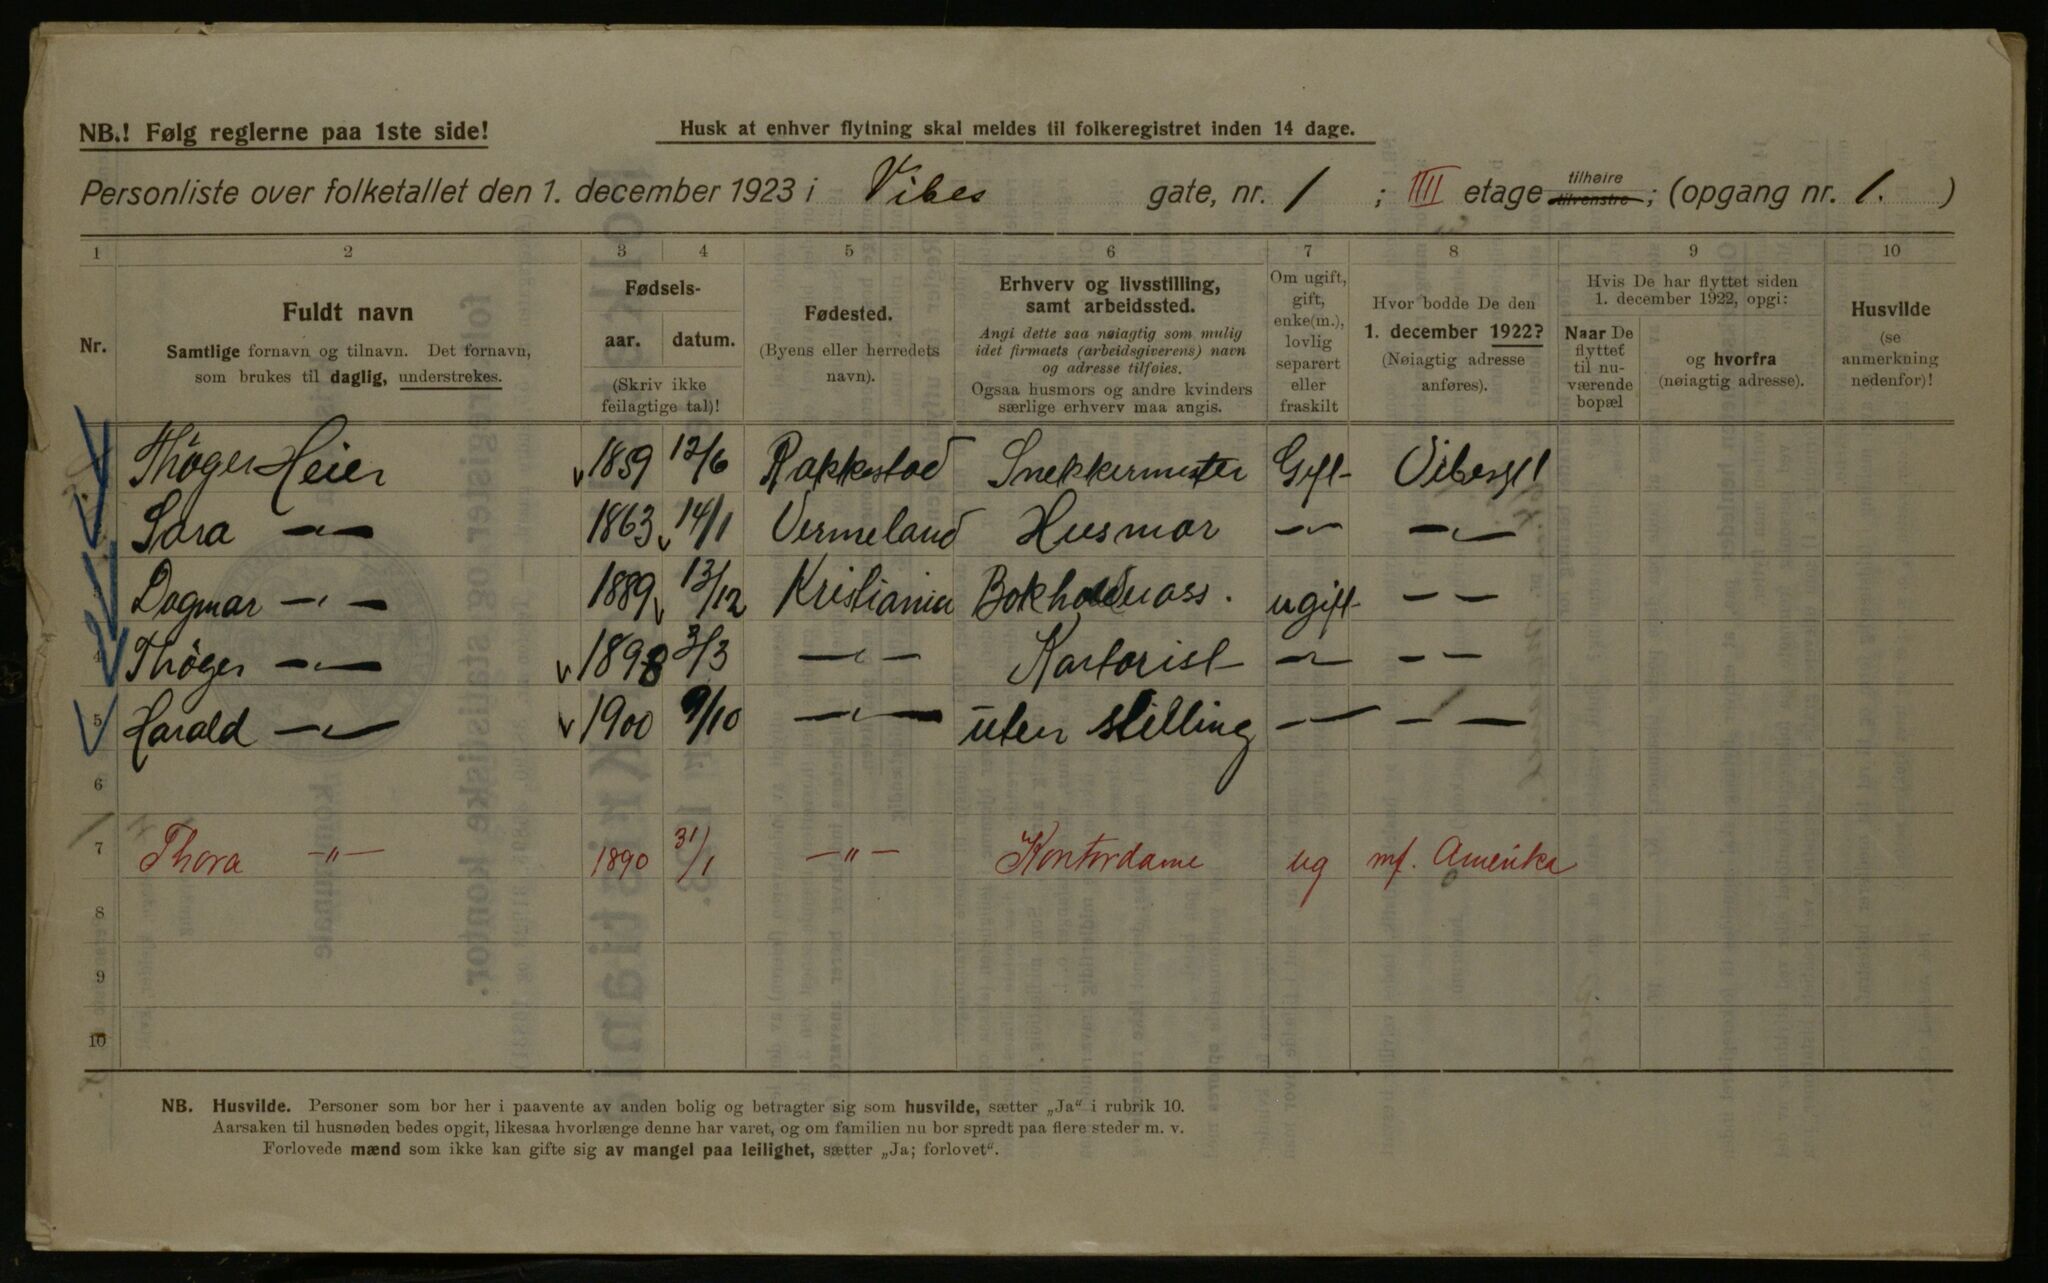 NB.! Følg reglerne paa 1ste side!
Husk at enhver flytning skal meldes til folkeregistret inden 14 dage.
Personliste over folketallet den 1. december 1923 i Vibes gate, nr. 1 ; IIII etage tilhøire tilvenstre ; (opgang nr. 1. )
1 2 3 4 5 6 7 8 9 10
Nr.
Fuldt navn
Samtlige fornavn og tilnavn. Det fornavn,
som brukes til daglig, understrekes.
Fødsels-
aar. datum.
(Skriv ikke
feilagtige tal)!
Fødested.
(Byens eller herredets
navn).
Erhverv og livsstilling,
samt arbeidssted.
Angi dette saa nøiagtig som mulig
idet firmaets (arbeidsgiverens) navn
og adresse tilføies.
Ogsaa husmors og andre kvinders
særlige erhverv maa angis.
Om ugift,
gift,
enke(m.),
lovlig
separert
eller
fraskilt
Hvor bodde De den
1. december 1922?
(Nøiagtig adresse
anføres).
Hvis De har flyttet siden
1. december 1922, opgi:
Naar De
flyttet
til nu-
værende
bopæl
og hvorfra
(nøiagtig adresse).
Husvilde
(se
anmerkning
nedenfor)!
Thöger Heier 1859 12/6 Rakkestad Snekkermester Gift Vibesgt 1
Sara -"- 1863 14/1 Vermeland Husmor -"- -"-
Dagmar -"- 1889 13/12 Kristiania Bokholderass. ugift - -
4 Thöger -"- 1898 3/3 -"- Kartorist -"- - -
5 Harald -"- 1900 9/10 -"- uten stilling - - - -
6
7 Thora -"- 1890 31/1 -"- Kontordame ug mf. Amerika
8
9
10
NB. Husvilde. Personer som bor her i paavente av anden bolig og betragter sig som husvilde, sætter „Ja" i rubrik 10.
Aarsaken til husnøden bedes opgit, likesaa hvorlænge denne har varet, og om familien nu bor spredt paa flere steder m. v.
Forlovede mænd som ikke kan gifte sig av mangel paa leilighet, sætter „Ja; forlovet".